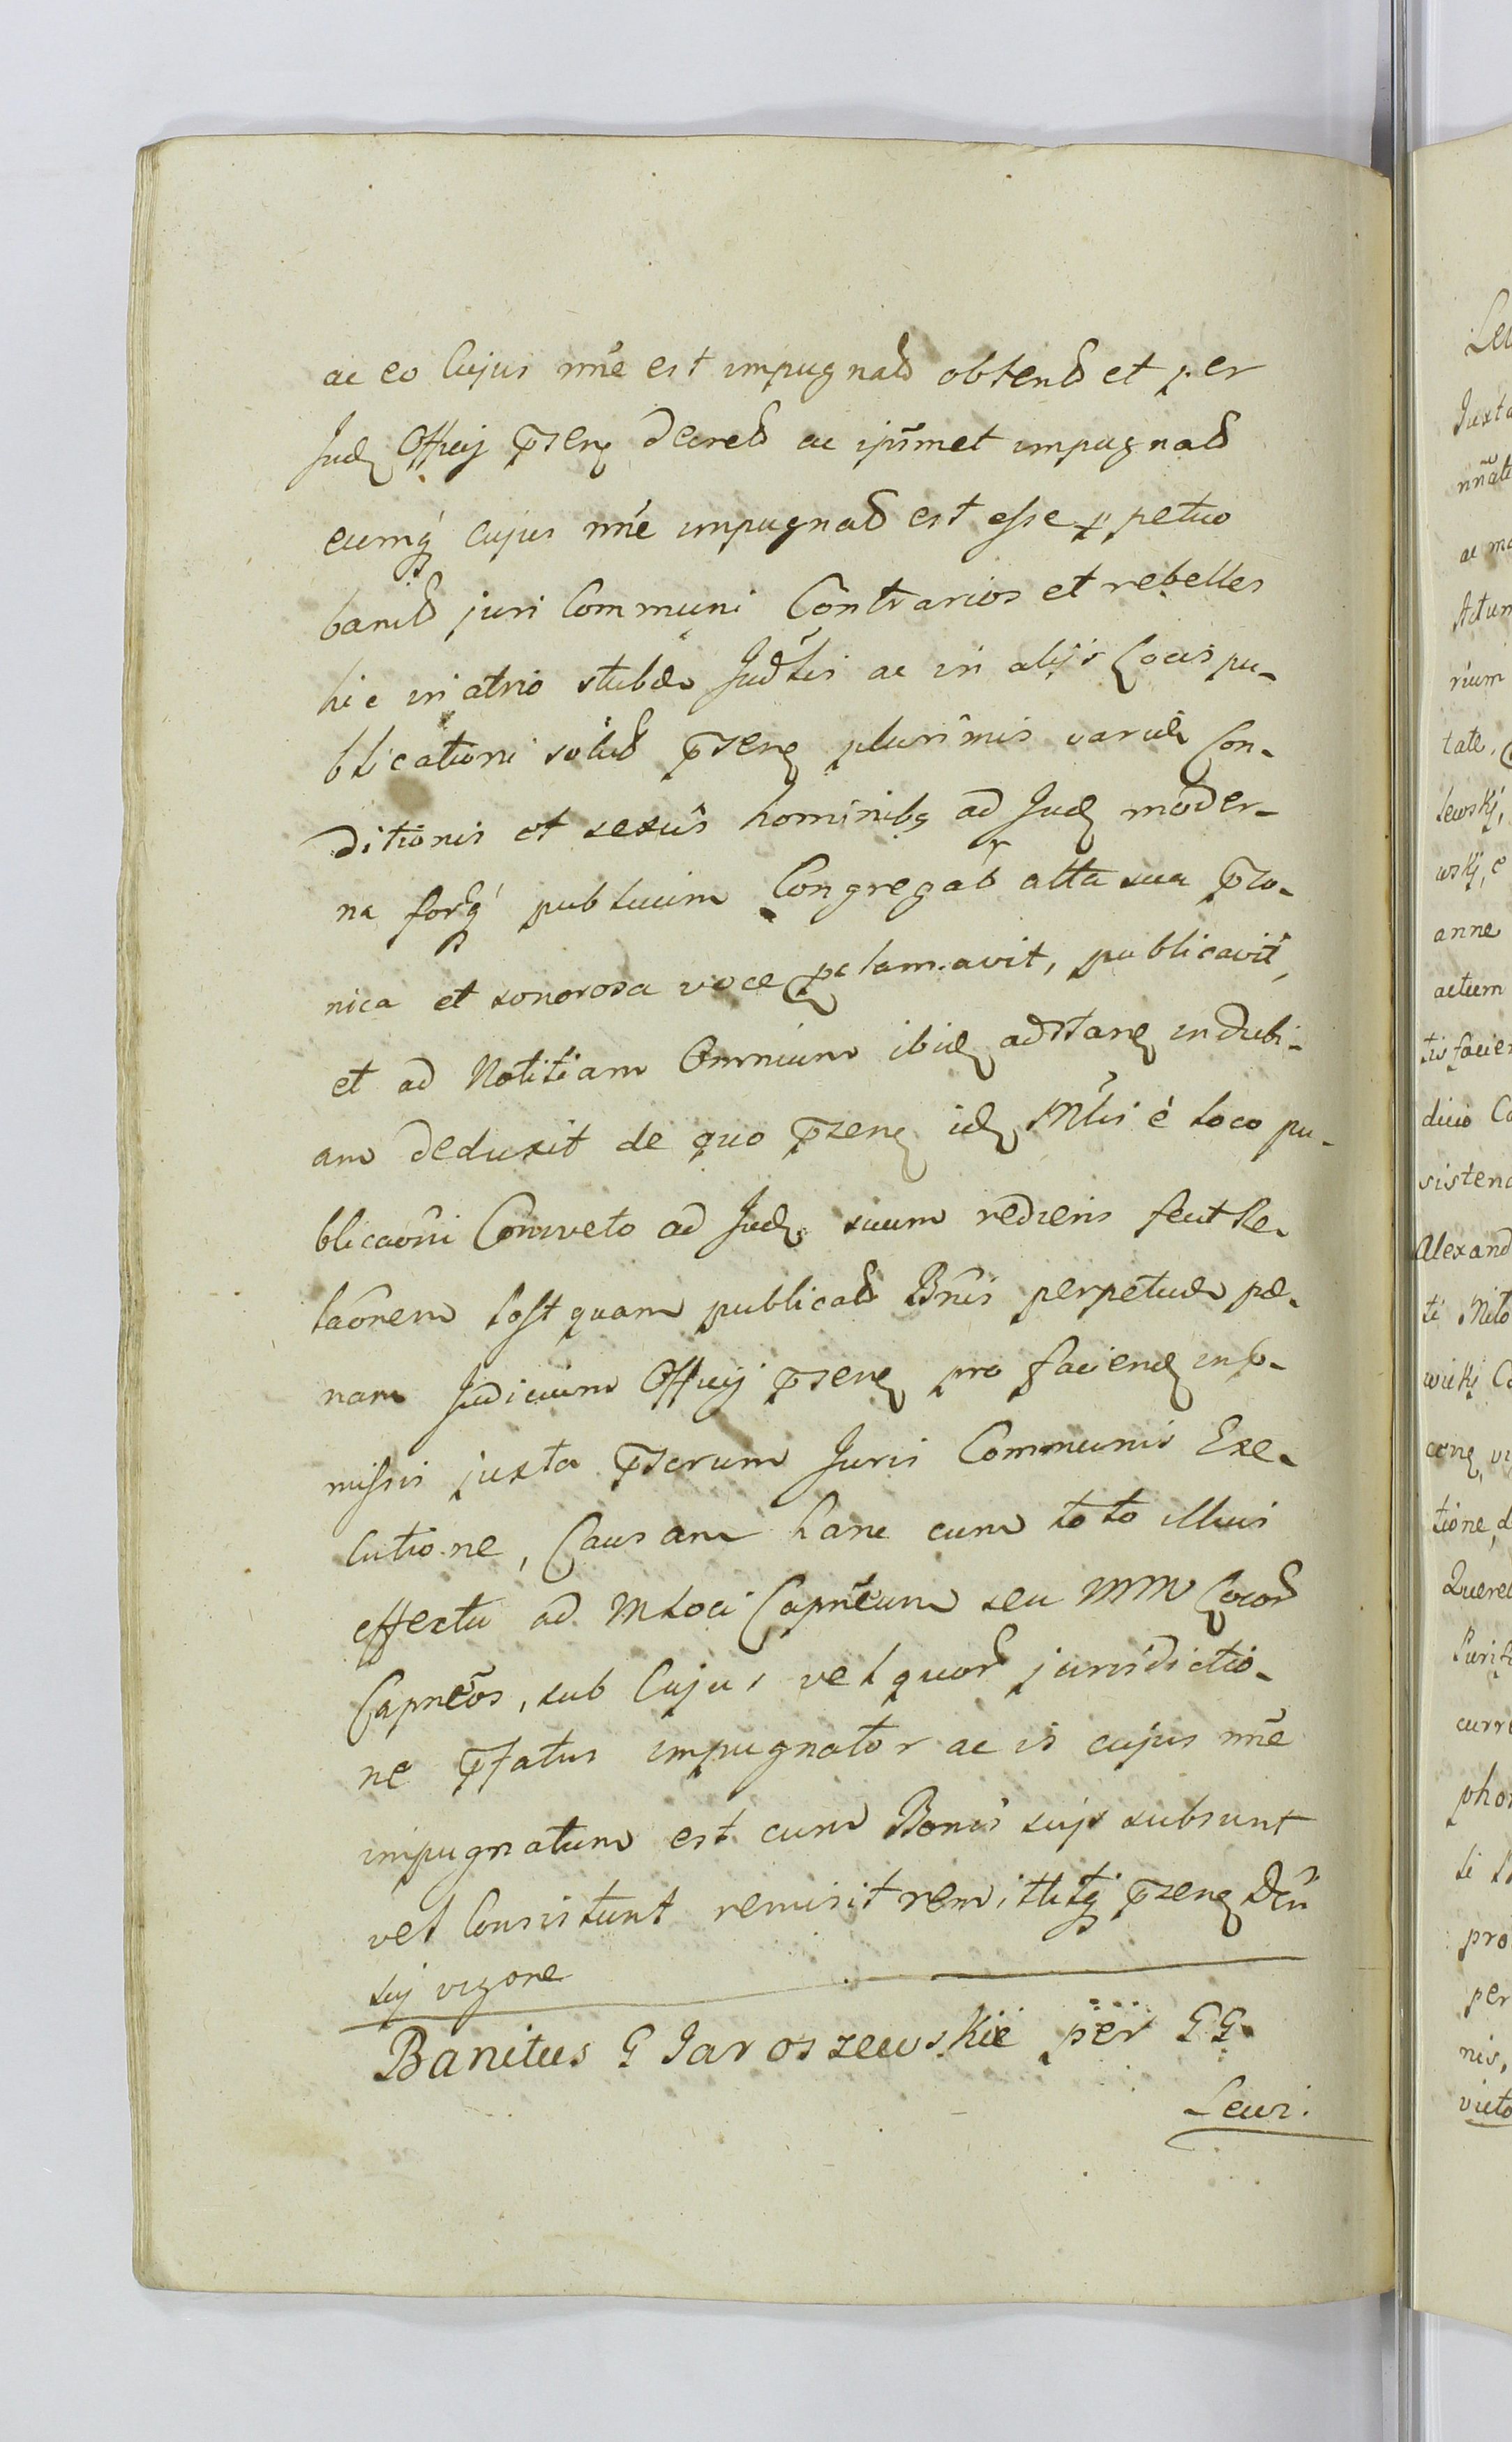 ac eo Cujus nn̄e est impugnatū obtentū et per
Jud Officij p̄sens decretū ac ipsũmet impugnatū
eumq́ cujus nn̄e impugnatū est esse ꝑpetuo
banitū juri Communi Contrarios et rebelles
hic in atrio stubæ Jud̃lis ac in alijs Locis pu-
blicationi solitū p̄sens plurimis variæ Con-
ditionis et sexûs hominibꝫ ad Jud moder-
na forq́ publicum Congregatr alta sua p̄co-
nica et sonorosa voce pclamavit, publicavit,
et ad Notitiam Omnium ibid adstanē indubi-
am deduxit de quo p̄sens id Mtlis è loco pu-
blicaōni Consveto ad Jud suum rediens fecit Re-
laōnem Postquam publicatū Bn̄is perpetuæ pæ-
nam Judicium Officij p̄sens pro faciend inp-
missis juxta p̄scrum Juris Communis Exe-
cutione, Causam hanc cum toto illius
effectu ad MLoci Capn̄eum seu MM Locor
Capn̄eos, sub Cujus vel quor jurisdictio-
ne p̄fatus impugnator ac is cujus nn̄e
impugnatum est cum Bonis suijs subsunt
vel Consistunt remisit remittitq́ p̄sens Dc̄ti
sui vigore
Banitus G Jaroszewskie per GG
Lewi.
Juxta
ac
rium
tate,
lewskj,
wskj, e
anne
actum
dicio
Alexand
ti
tione
per
nis,